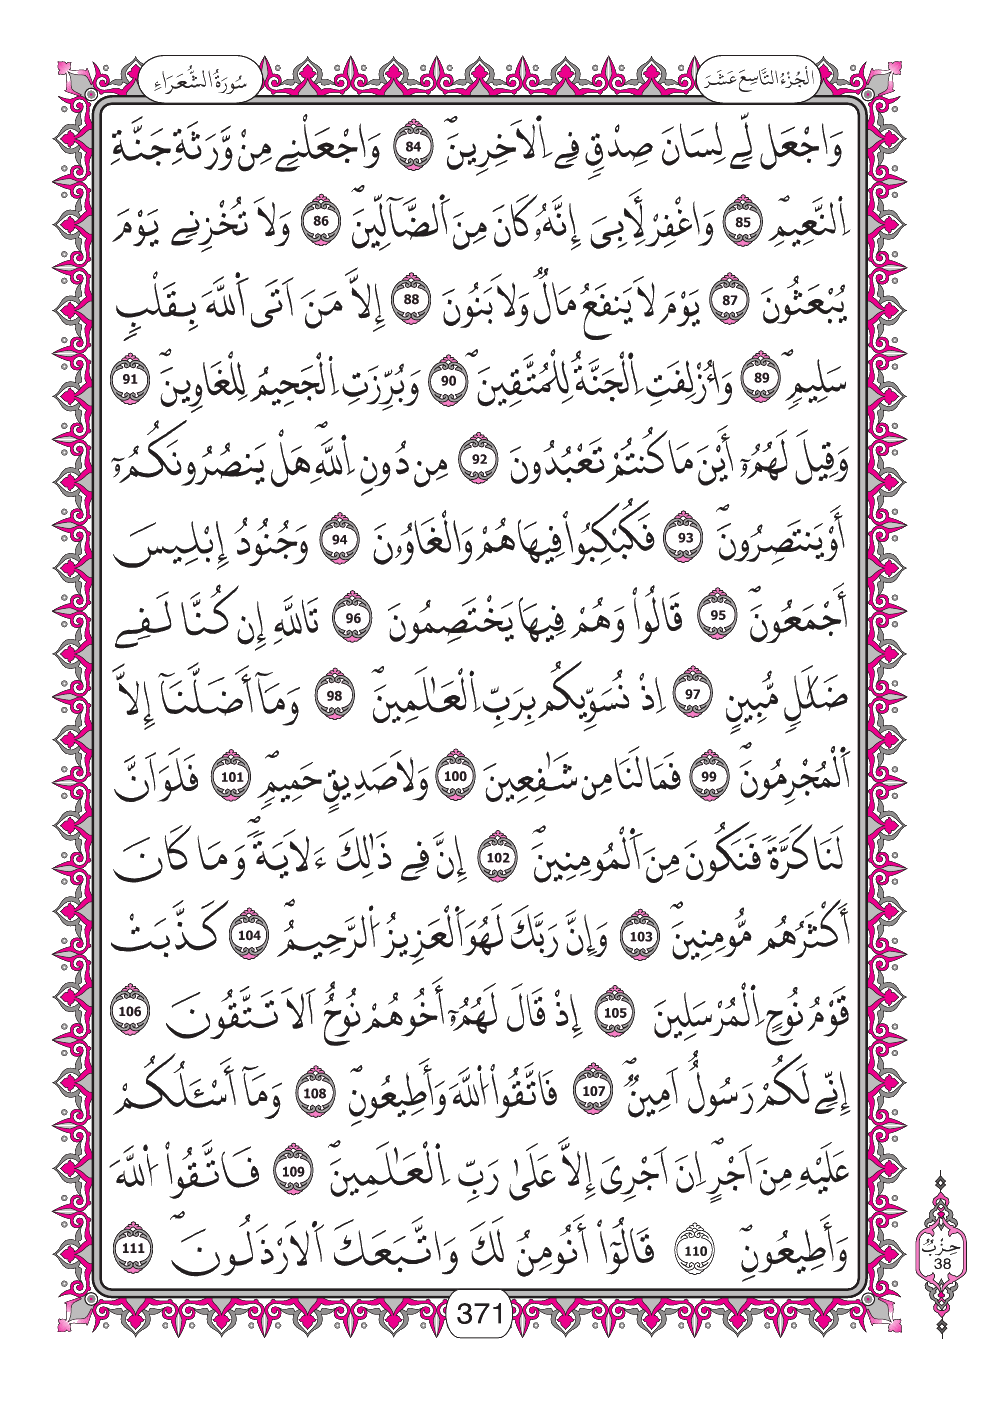 الجزء التاسع عشر
سورة الشعراء
وَاجْعَل لِّے لِسَانَ صِدْقٖ فِے اِ۬لَاخِرِينَۖ 84 وَاجْعَلْنِے مِنْ وَّرَثَةِ جَنَّةِ
اِ۬لنَّعِيمِۖ 85 وَاغْفِرْ لِأَبِىَ إِنَّهُۥ كَانَ مِنَ اَ۬لضَّآلِّينَۖ 86 وَلَا تُخْزِنِے يَوْمَ
يُبْعَثُونَ 87 يَوْمَ لَا يَنفَعُ مَالٞ وَلَا بَنُونَ 88 إِلَّا مَنَ اَتَى اَ۬للَّهَ بِقَلْبٖ
سَلِيمٖۖ 89 وَأُزْلِفَتِ اِ۬لْجَنَّةُ لِلْمُتَّقِينَۖ 90 وَبُرِّزَتِ اِ۬لْجَحِيمُ لِلْغَاوِينَۖ 91
وَقِيلَ لَهُمُۥٓ أَيْنَ مَا كُنتُمْ تَعْبُدُونَ 92 مِن دُونِ اِ۬للَّهِۖ هَلْ يَنصُرُونَكُمُۥٓ
أَوْ يَنتَصِرُونَۖ 93 فَكُبْكِبُواْ فِيهَا هُمْ وَالْغَاوُۥنَ 94 وَجُنُودُ إِبْلِيسَ
أَجْمَعُونَۖ 95 قَالُواْ وَهُمْ فِيهَا يَخْتَصِمُونَ 96 تَاللَّهِ إِن كُنَّا لَفِے
ضَلَٰلٖ مُّبِينٍ 97 اِذْ نُسَوِّيكُم بِرَبِّ اِ۬لْعَٰلَمِينَۖ 98 وَمَآ أَضَلَّنَآ إِلَّا
اَ۬لْمُجْرِمُونَۖ 99 فَمَا لَنَا مِن شَٰفِعِينَ 100 وَلَا صَدِيقٍ حَمِيمٖۖ 101 فَلَوَ اَنَّ
لَنَا كَرَّةٗ فَنَكُونَ مِنَ اَ۬لْمُومِنِينَۖ 102 إِنَّ فِے ذَٰلِكَ ءَلَايَةٗۖ وَمَا كَانَ
أَكْثَرُهُم مُّومِنِينَۖ 103 وَإِنَّ رَبَّكَ لَهُوَ اَ۬لْعَزِيزُ اُ۬لرَّحِيمُۖ 104 كَذَّبَتْ
قَوْمُ نُوحٍ اِ۬لْمُرْسَلِينَ 105 إِذْ قَالَ لَهُمُۥٓ أَخُوهُمْ نُوحٌ اَلَا تَتَّقُونَ 106
إِنِّے لَكُمْ رَسُولٌ اَمِينٞۖ 107 فَاتَّقُواْ اُ۬للَّهَ وَأَطِيعُونِۖ 108 وَمَآ أَسْـَٔلُكُمْ
عَلَيْهِ مِنَ اَجْرٍۖ اِنَ اَجْرِىَ إِلَّا عَلَىٰ رَبِّ اِ۬لْعَٰلَمِينَۖ 109 فَاتَّقُواْ اُ۬للَّهَ
وَأَطِيعُونِۖ 110 قَالُوٓاْ أَنُومِنُ لَكَ وَاتَّبَعَكَ اَ۬لَارْذَلُونَۖ 111
حزب
38
371